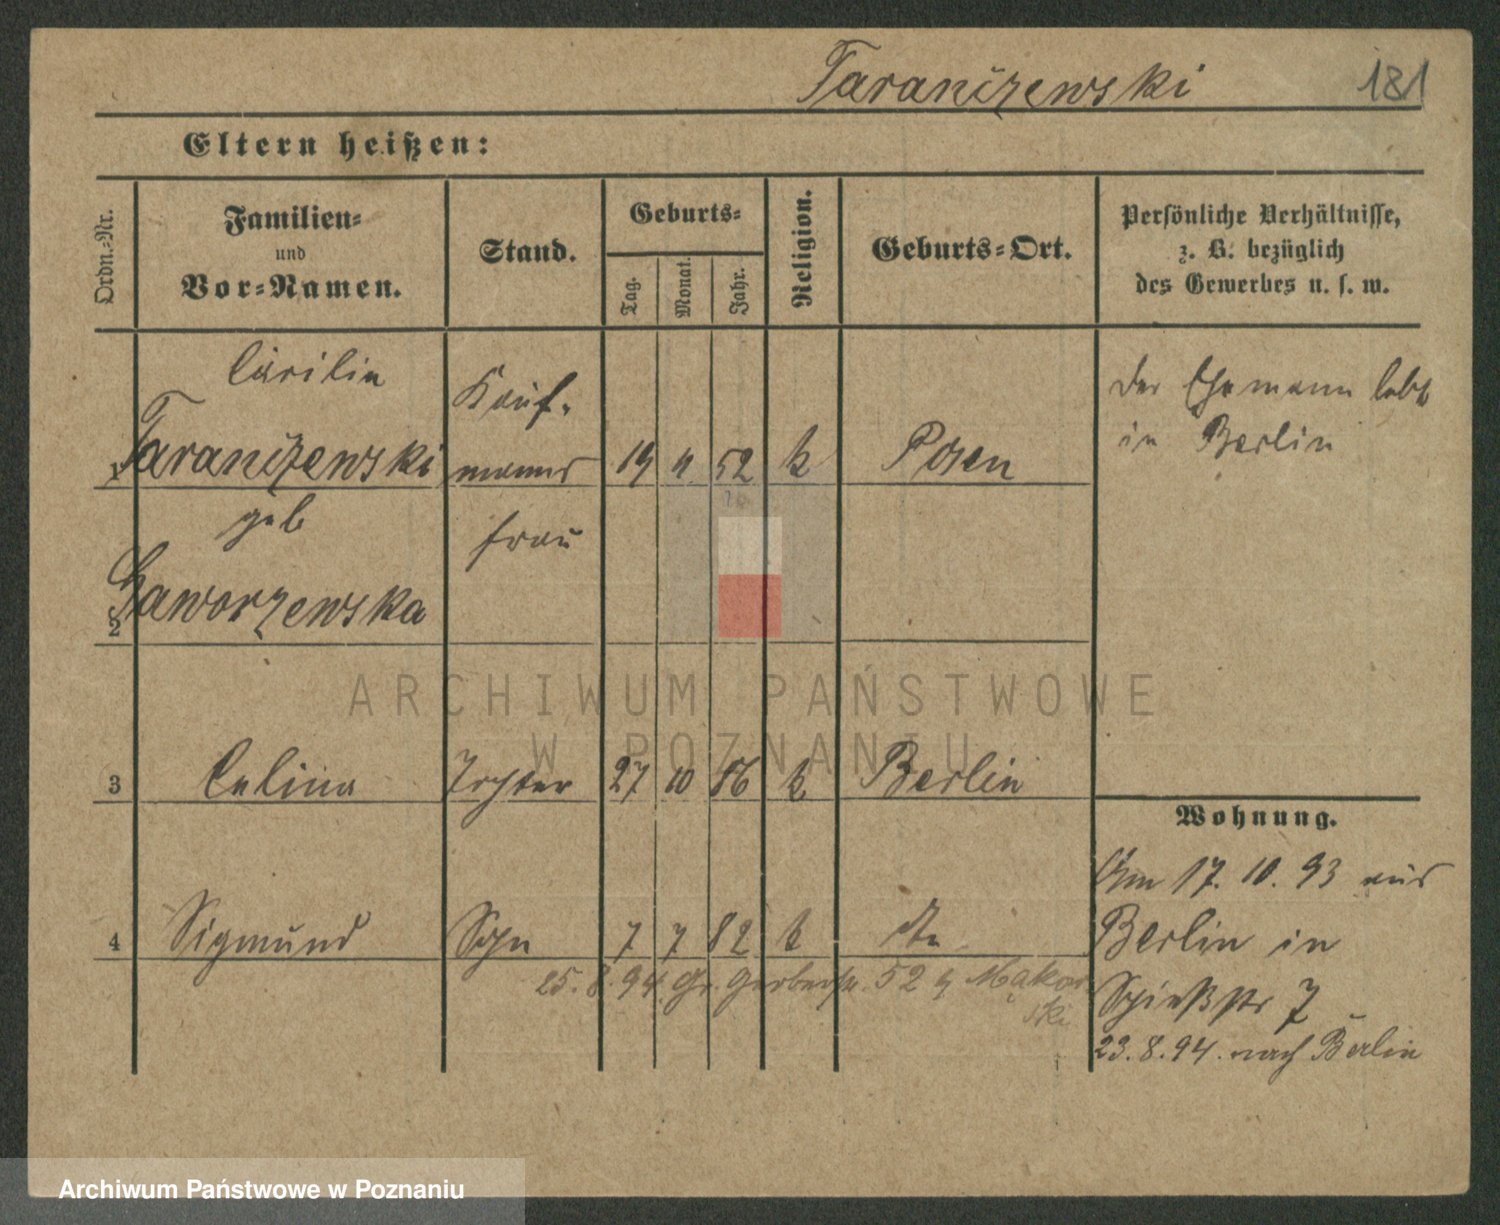 Taranizewski 181
Eltern heißen:
Ordn.-Nr.
Familien-
und
Vor-Namen.
Stand.
Geburts-
Tag.
Monat.
Jahr.
Religion.
Geburts-Ort.
Persönliche Verhältnisse,
z. B. bezüglich
des Gewerbes u. s. w.
Cäcilie
Kauf-
der Ehemann lebt
in Berlin
1 Taranizewski manns 19 11 52 k Posen
geb frau
2 Jaworzewska
ARCHIWUM PAŃSTWOWE
W POZNANIU
3 Celina Tochter 27 10 86 k Berlin
Wohnung.
Am 17. 10. 93 aus
4 Sigmund Sohn 7 7 82 k do
Berlin in
25. 8. 94 Gr. Gerberstr. 52 Mąkow
ski
Schießstr 7
23. 8. 94. nach Berlin
Archiwum Państwowe w Poznaniu